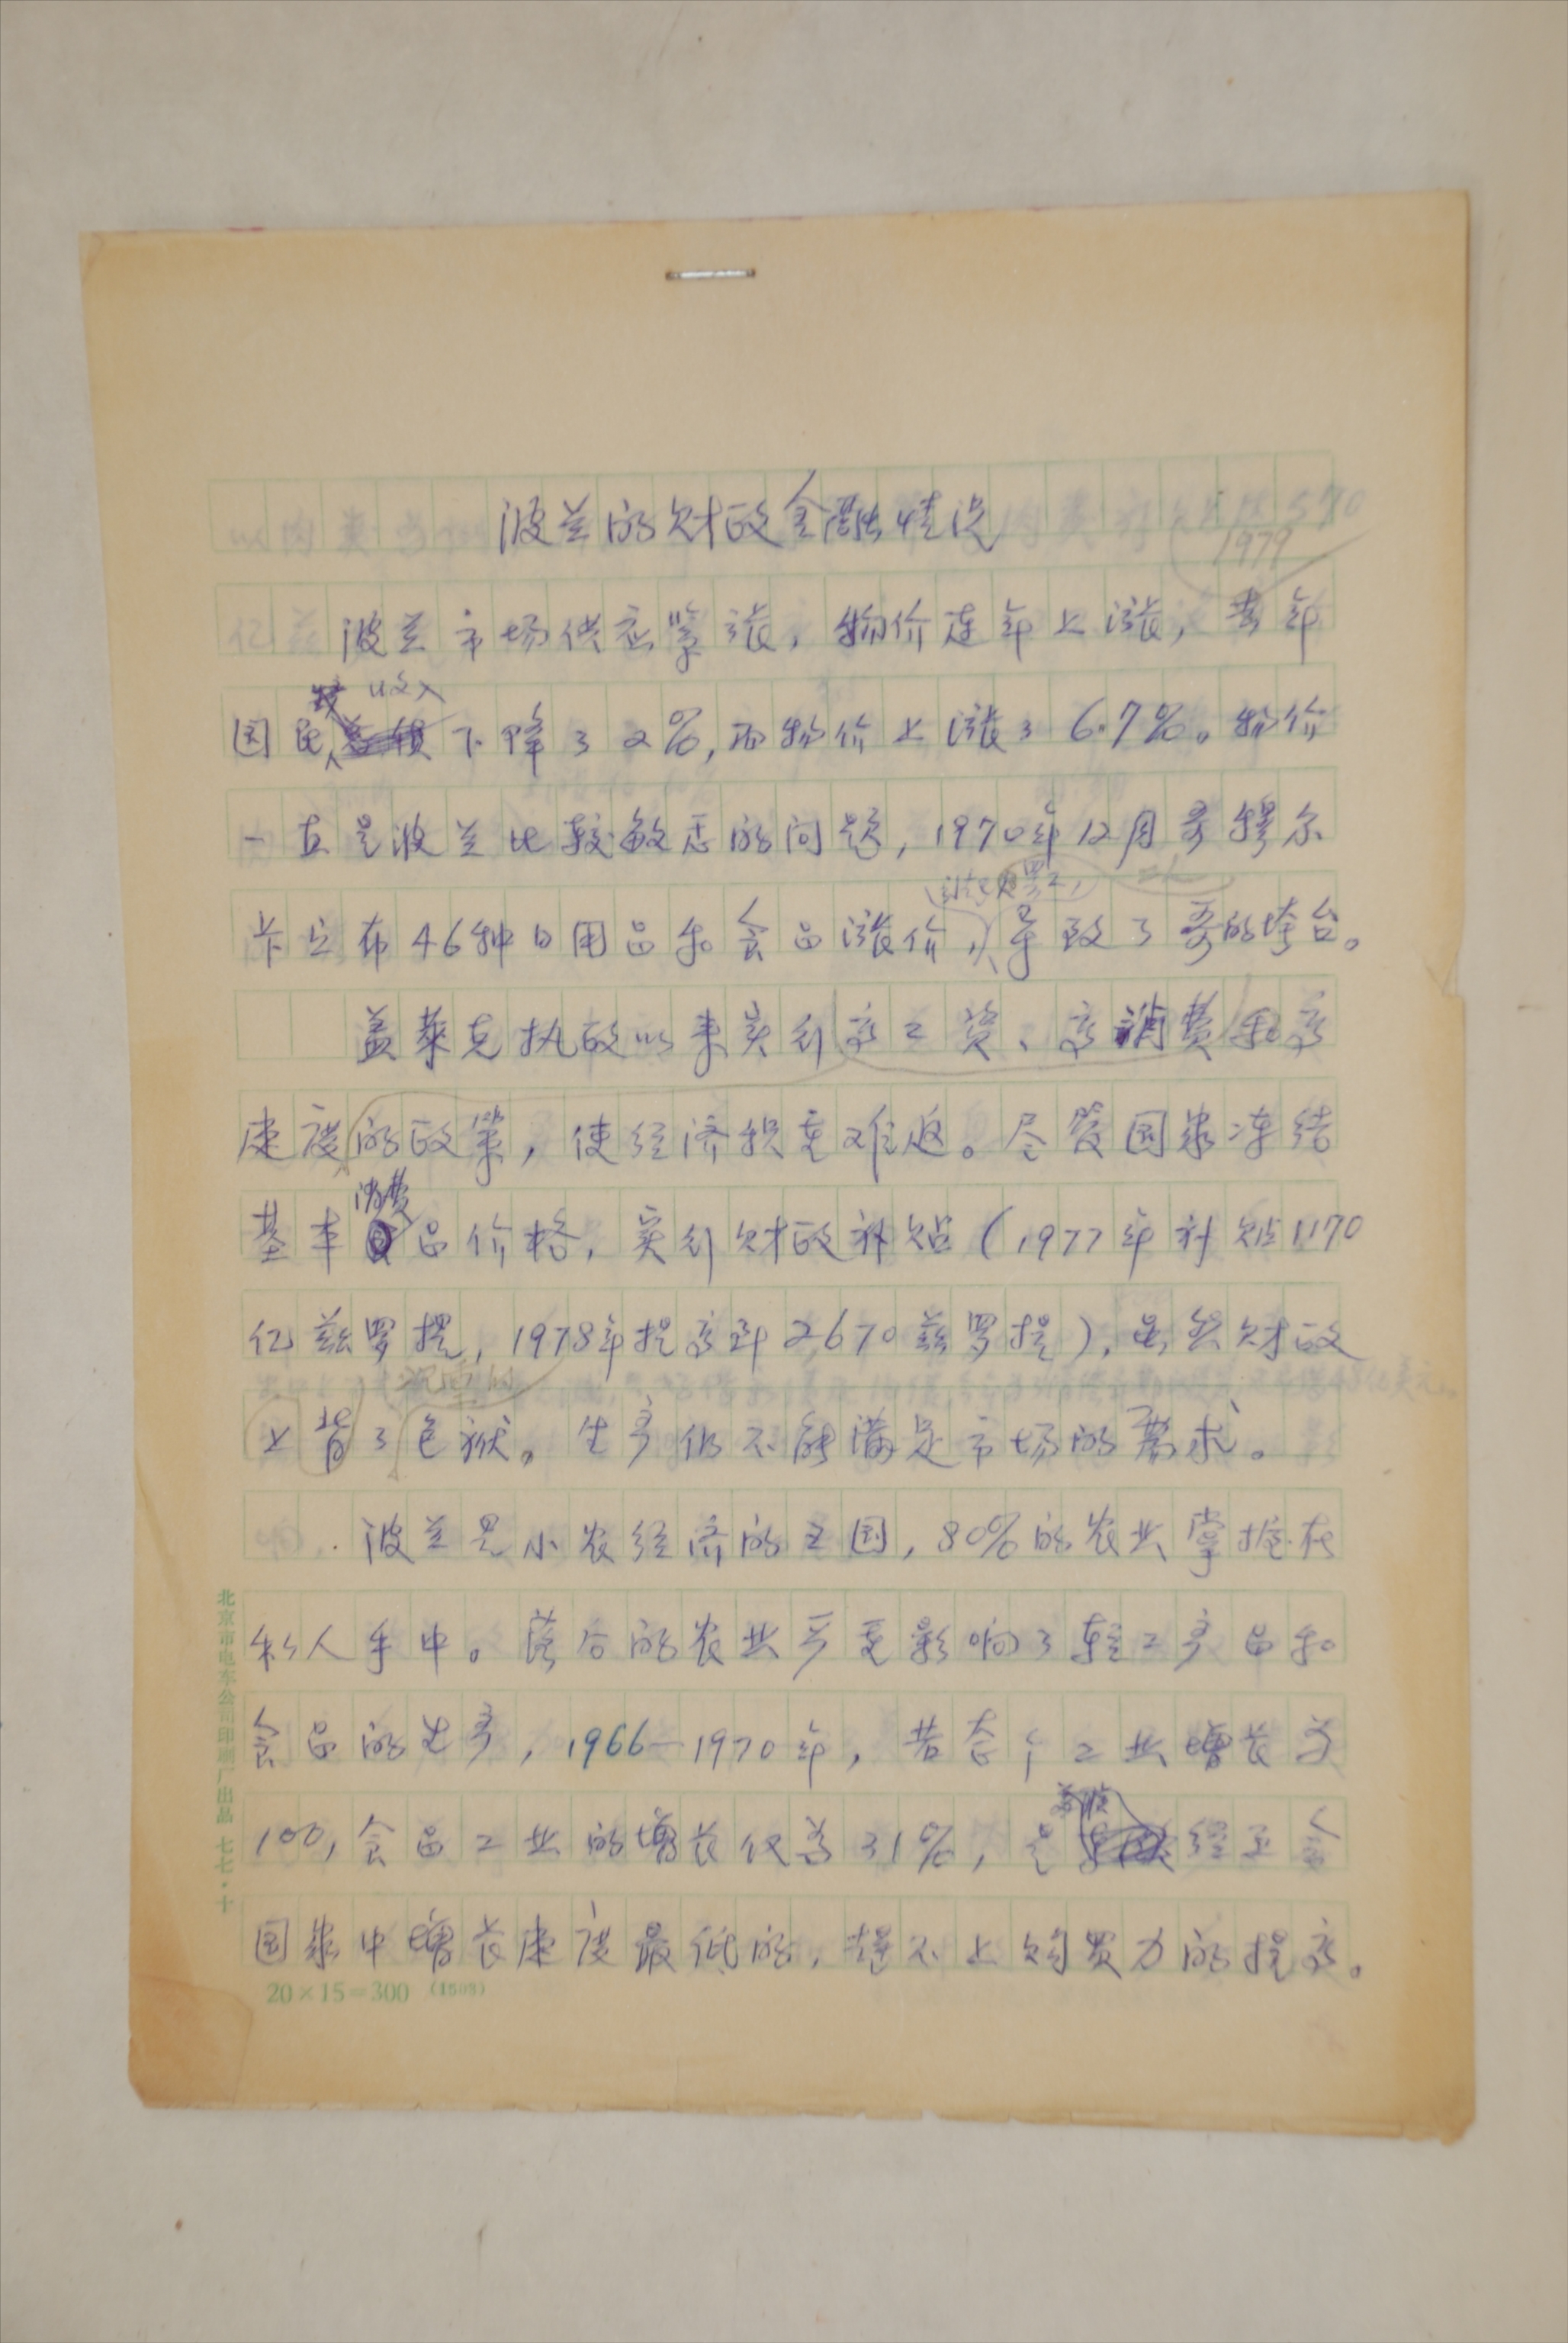 波兰的财政金融情况
1979
波兰市场供应紧张，物价连年上涨，去年
收入
国民下降了2%，而物价上涨了6.7%。物价
一直是波兰比较敏感的问题，1970年12月哥穆尔
卡宣布46种日用品和食品涨价，导致了哥的垮台。
盖莱克执政以来实行高工资、高消费和高
速度的政策，使经济积重难返。尽管国家冻结
消费
基本品价格，实行财政补贴（1977年补贴1170
亿兹罗提，1978年提高到2670兹罗提），虽然财政
沉重的
上背了包袱，生产仍不能满足市场的需求。
波兰是小农经济的王国，80%的农业掌握在
私人手中。落后的农业严重影响了轻工产品和
食品的生产，1966—1970年，若整个工业增长为
100，食品工业的增长仅为31%，是经互会
国家中增长速度最低的，赶不上购买力的提高。
20×15=300 (1503)
北京市电车公司印刷厂出品 七七·十